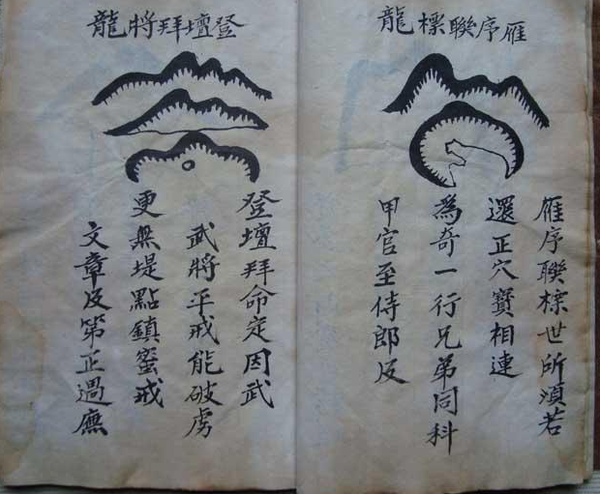 雁序聯標龍
雁序聯標世所須若
還正穴寳相連
為奇一行兄弟同科
甲官至侍郎反
登壇拜將龍
登壇拜命定因武
武將平戎能破虜
更無堤點鎮蜜戒
文章及第正過廡